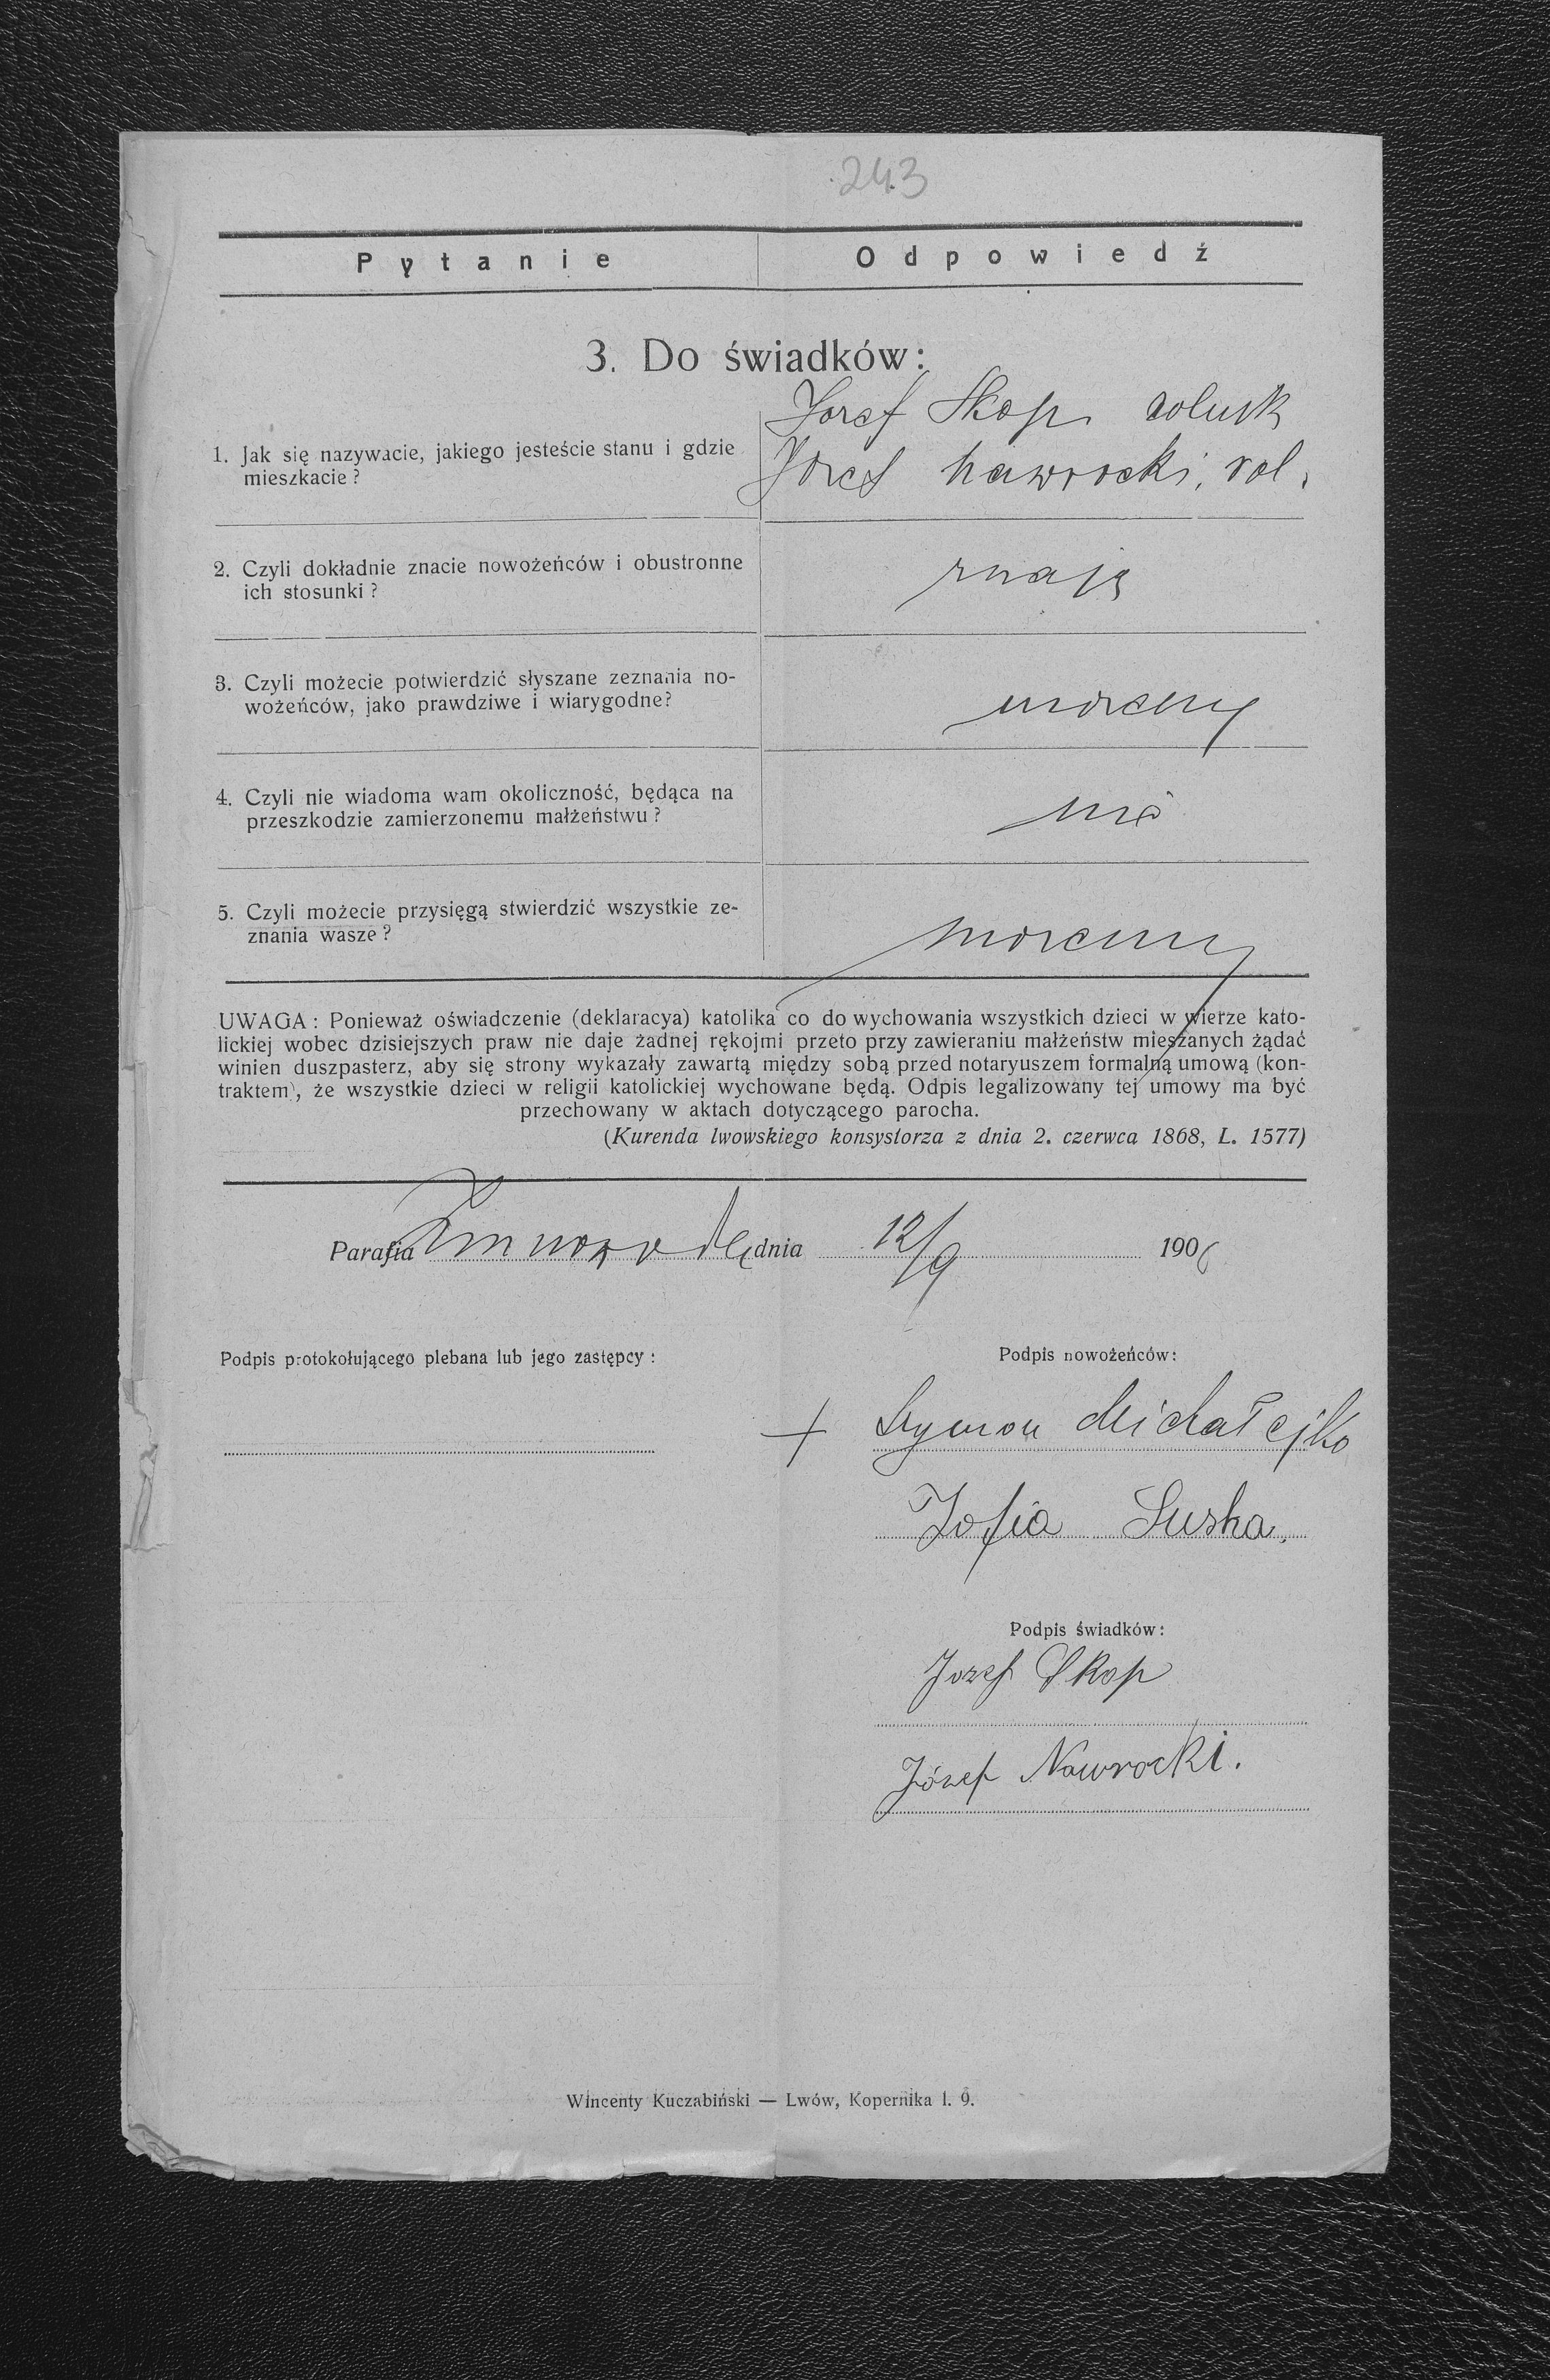 243
Pytanie Odpowiedź
3. Do świadków:
Jozef Skop rolnik
1. Jak się nazywacie, jakiego jesteście stanu i gdzie
mieszkacie?
Józef Nawrocki, rol.
2. Czyli dokładnie znacie nowożeńców i obustronne
ich stosunki?
znają
3. Czyli możecie potwierdzić słyszane zeznania no-
wożeńców, jako prawdziwe i wiarygodne?
możemy
4. Czyli nie wiadoma wam okoliczność, będąca na
przeszkodzie zamierzonemu małżeństwu?
nie
5. Czyli możecie przysięgą stwierdzić wszystkie ze-
znania wasze?
możemy
UWAGA: Ponieważ oświadczenie (deklaracya) katolika co do wychowania wszystkich dzieci w wierze kato-
lickiej wobec dzisiejszych praw nie daje żadnej rękojmi przeto przy zawieraniu małżeństw mieszanych żądać
winien duszpasterz, aby się strony wykazały zawartą między sobą przed notaryuszem formalną umową (kon-
traktem), że wszystkie dzieci w religii katolickiej wychowane będą. Odpis legalizowany tej umowy ma być
przechowany w aktach dotyczącego parocha.
(Kurenda lwowskiego konsystorza z dnia 2. czerwca 1868, L. 1577)
Parafia dnia 12/9 190
Podpis protokołującego plebana lub jego zastępcy:
Podpis nowożeńców:
+ Szymon Michałejko
Zofia Suska.
Podpis świadków:
Jozef Skop
Józef Nawrocki.
Wincenty Kuczabiński — Lwów, Kopernika l. 9.